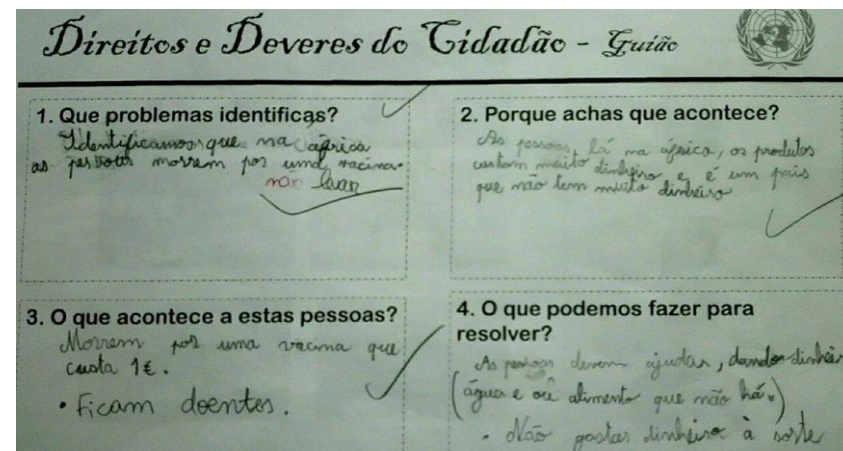 Direitos e Deveres do Cidadão - Guião
1. Que problemas identificas?
Identificamos que na africa
as pessoas morrem por uma vacina.
não levar
2. Porque achas que acontece?
As pessoas lá na áfrica, os produtos
custam muito dinheiro e é um país
que não tem muito dinheiro
3. O que acontece a estas pessoas?
Morrem por uma vacina que
custa 1€.
• Ficam doentes.
4. O que podemos fazer para
resolver?
As pessoas devem ajudar, dando dinheir
(água e ou alimento que não há.)
• Não gastar dinheiro à sorte